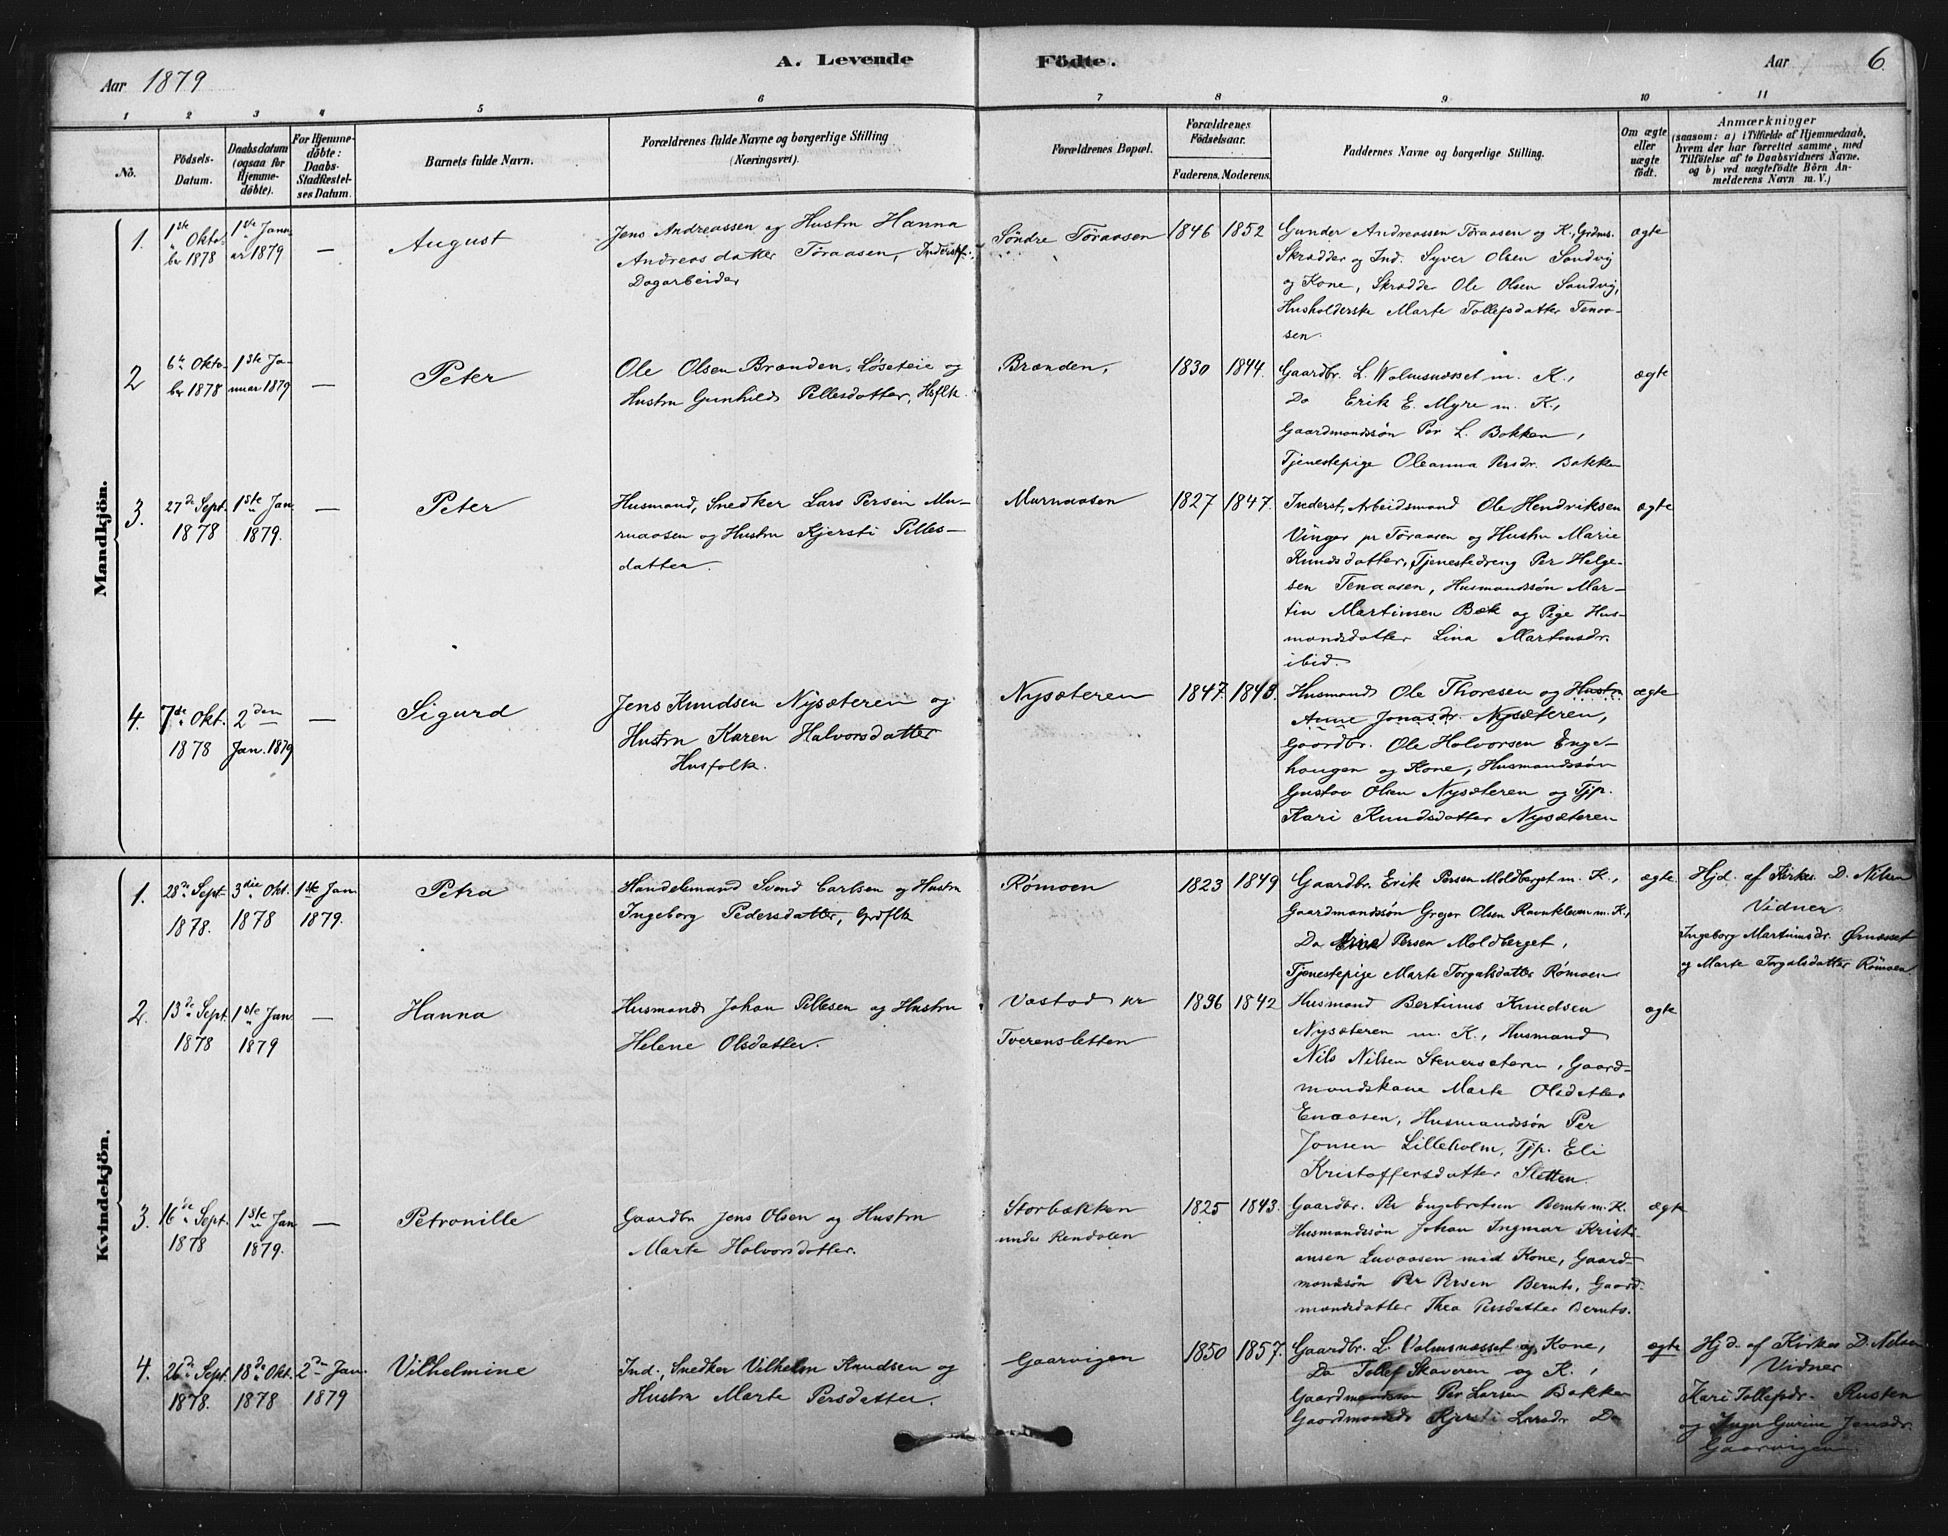 Aar 1879
A. Levende Födte.
Aar
6.
1 2 3 4 5 6 7 8 9 10 11
No.
Födsels-Datum.
Daabsdatum (ogsaa for Hjemmedöbte).
For Hjemmedöbte: Daabs-Stadfæstelses Datum.
Barnets fulde Navn.
Forældrenes fulde Navne og borgerlige Stilling (Næringsvei).
Forældrenes Bopæl.
Forældrenes Födselsaar.
Faderens. Moderens.
Faddernes Navne og borgerlige Stilling.
Om ægte eller uægte födt.
Anmærkninger
(saasom: a) i Tilfælde af Hjemmedaab, hvem der har forrettet samme, med Tilföielse af to Daabsvidners Navne, og b) ved uægtefödte Börn Anmelderens Navn m. V.)
Mandkjön.
1.
1ste Okto-
ber 1878
1ste Janu-
ar 1879.
—
August
Jens Andreassen og Hustru Hanna
Andreasdatter Töraasen, Inderstf.,
Dagarbeider
Söndre Töraasen
1846
1852
Gunder Andreassen Töraasen og K., Grdms.
Skrædder og Ind. Syver Olsen Sandvig
og Kone, Skrædder Ole Olsen Sandvig,
Husholderske Marte Tollefsdatter Tenaa-
sen.
ægte
2
6te Okto-
ber 1878
1ste Ja-
nuar 1879
—
Peter
Ole Olsen Brænden, Löseteie og
Hustru Gunhild Pellesdatter, Hsflk.
Brænden,
1830
1844.
Gaardbr. L. Volmsnæsset m. K.,
Do Erik E. Myre m. K.,
Gaardmandssön Per L. Bakken,
Tjenestepige Oleanna Persdr. Bakken
ægte
3.
27de Sept.
1878
1ste Jan.
1879.
—
Peter
Husmand, Snedker Lars Persen Mu-
ruaasen og Hustru Kjersti Pelles-
datter.
Muruaasen
1827
1847.
Inderst, Arbeidsmand Ole Hendriksen
Vinger pr Töraasen og Hustru Marie
Knudsdatter, Tjenestedreng Per Helge-
sen Tenaasen, Husmandssön Mar-
tin Martinsen Bæk og Pige Hus-
mandsdatter Lina Martinsdr.
ibid.
ægte
4.
7de Okt.
1878
2den
Jan. 1879
—
Sigurd
Jens Knudsen Nysæteren og
Hustru Karen Halvorsdatter
Husfolk.
Nysæteren
1847.
1848.
Husmand Ole Thoresen og Hustru
Anne Jonasdr. Nysæteren,
Gaardbr. Ole Halvorsen Enge-
haugen og Kone, Husmandssön
Gustav Olsen Nysæteren og Tjp.
Kari Knudsdatter Nysæteren
ægte
Kvindekjön.
1.
28de Sept.
1878.
3die Okt.
1878
1ste Jan
1879.
Petra
Handelsmand Svend Carlsen og Hustru
Ingeborg Pedersdatter, Grdflk
Römoen
1823
1849
Gaardbr. Erik Persen Moldberget m. K.,
Gaardmandssön Greger Olsen Ravnkleven m. K.,
Do Persen Moldberget,
Tjenestepige Marte Torgalsdatter Römoen
ægte.
Hjd. af Kirkes. D. Nilsen
Vidner.
Ingeborg Martinusdr. Örnæsset
og Marte Torgalsdatter Römoen
2.
13de Sept.
1878
1ste Jan
1879
—
Hanna
Husmand Johan Pellesen og Hustru
Helene Olsdatter.
Vastad pr
Tverensletten
1836
1842
Husmand Bertinus Knudsen
Nysæteren m. K., Husmand
Nils Nilsen Steversæteren, Gaard-
mandskone Marte Olsdatter
Enaasen, Husmandssön Per
Jonsen Lilleholm, Tjp. Eli
Kristoffersdatter Sletten.
ægte
3.
16de Sept.
1878
1ste Jan
1879.
—
Petronille
Gaardbr Jens Olsen og Hustru
Marte Halvorsdatter.
Storbækken
under Rendalen
1825
1843.
Gaardbr. Per Engebretsen Bernts m. K.
Husmandssön Johan Ingmar Kristi-
ansen Luvaasen med Kone, Gaard-
mandssön Per Persen Bernts, Gaard-
mandsdatter Thea Persdatter Bernts.
ægte
4.
26de Sept.
1878.
18de Okt.
1878
2den Jan.
1879
Vilhelmine
Ind., Snedker Vilhelm Knudsen og
Hustru Marte Persdatter.
Gaarvigen
1850
1857.
Gaardbr. L. Volmsnæsset og Kone,
Do Tollef Skaveren og K.,
Gaardmandssön Per Larsen Bakken
Gaardmandsd. Kjersti Larsdr. Do
ægte
Hjd. af Kirkes. D. Nilsen
Vidner
Kari Tollefsdr. Rusten
og Inger Gurine Jensdr.
Gaarvigen.